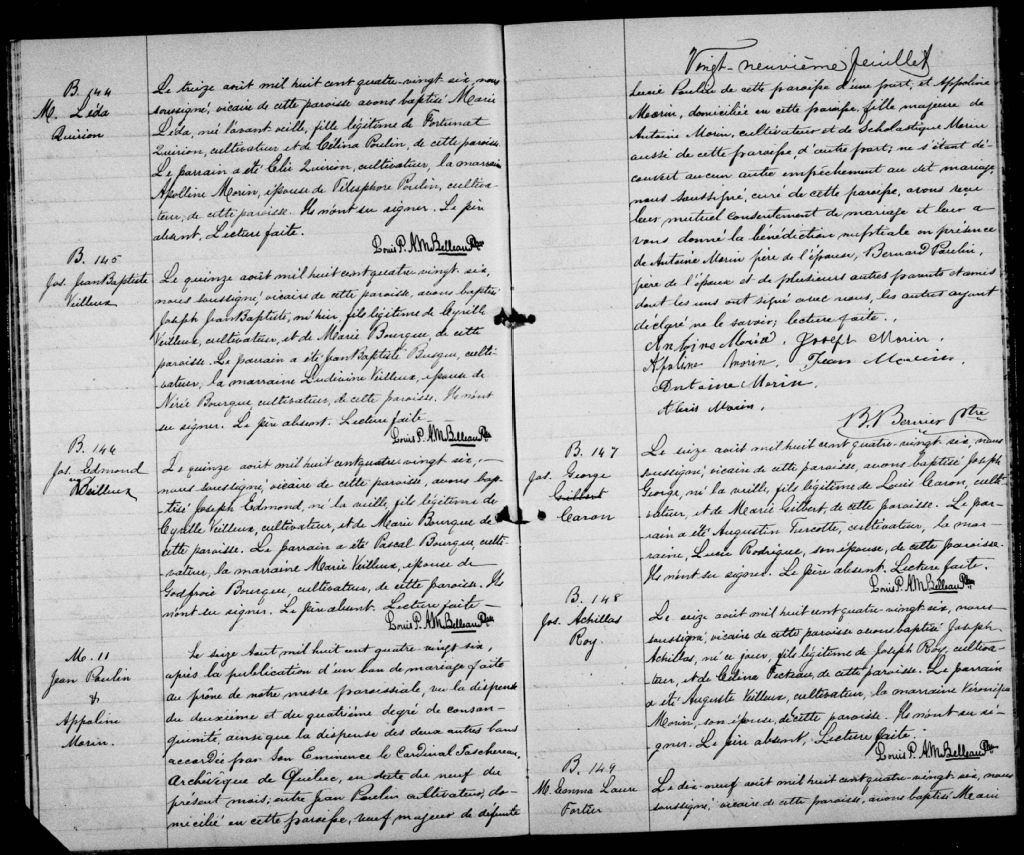 B. 144
M. Léda
Quirion
Le treize août mil huit cent quatre-vingt six, nous
soussigné, vicaire de cette paroisse avons baptisé Marie
Léda, née l'avant veille, fille légitime de Fortunat
Quirion, cultivateur et de Célina Poulin, de cette paroisse.
Le parrain a été Elie Quirion, cultivateur, la marraine
Apolline Morin, épouse de Télesphore Poulin, cultiva-
teur, de cette paroisse. Ils n'ont su signer. Le père
absent. Lecture faite.
Louis P. A M. Belleau Ptre
B. 145
Jos. Jean Baptiste
Veilleux
Le quinze août mil huit cent quatre-vingt-six,
nous soussigné, vicaire de cette paroisse, avons baptisé
Joseph Jean Baptiste, né hier, fils légitime de Cyrille
Veilleux, cultivateur, et de Marie Bourque, de cette
paroisse. Le parrain a été Jean Baptiste Busque, culti-
vateur, la marraine Ludivine Veilleux, épouse de
Nérée Bourque cultivateur, de cette paroisse. Ils n'ont
su signer. Le père absent. Lecture faite
Louis P. A M. Belleau Ptre
B. 146
Jos. Edmond
Veilleux
Le quinze août mil huit cent quatre vingt six, –
nous soussigné, vicaire de cette paroisse, avons bap-
tisé Joseph Edmond, né la veille, fils légitime de
Cyrille Veilleux, cultivateur, et de Marie Bourque de
cette paroisse. Le parrain a été Pascal Bourque, culti-
vateur, la marraine Marie Veilleux, épouse de
Godfroie Bourque, cultivateur, de cette paroisse. Ils
n'ont su signer. Le père absent. Lecture faite –
Louis P. A M. Belleau Ptre
M. 11
Jean Poulin
&
Appoline
Morin.
Le seize Aout mil huit cent quatre vingt six,
après la publication d'un ban de mariage faite
au prône de notre messe paroissiale, vu la dispense
du deuxième et du quatrième degré de consan-
guinité, ainsi que la dispense des deux autres bans
accordée par Son Eminence le Cardinal Taschereau
Archevêque de Québec, en date du neuf du
présent mois; entre Jean Poulin cultivateur, do-
micilié en cette paroisse, veuf majeur de défunte
Vingt-neuvième feuillet
Lucie Poulin de cette paroisse d'une part; et Appoline
Morin, domiciliée en cette paroisse, fille majeure de
Antoine Morin, cultivateur et de Scholastique Morin
aussi de cette paroisse, d'autre part; ne s'étant dé-
couvert aucun autre empêchement au dit mariage,
nous soussigné, curé de cette paroisse, avons reçu
leur mutuel consentement de mariage et leur a-
vons donné la bénédiction nuptiale en présence
de Antoine Morin père de l'épouse, Bernard Poulin,
père de l'époux et de plusieurs autres parents et amis
dont les uns ont signé avec nous, les autres ayant
déclaré ne le savoir; lecture faite.
Antoine Morin. Joseph Morin.
Apoline Morin. Jean Morin
Antoine Morin.
Alexis Morin.
B. Bernier Ptre
B. 147
Jos. George
Gilbert
Caron
Le seize août mil huit cent quatre-vingt six, nous
soussigné, vicaire de cette paroisse, avons baptisé Joseph
George, né la veille, fils légitime de Louis Caron, culti-
vateur, et de Marie Gilbert, de cette paroisse. Le par-
rain a été Augustin Turcotte, cultivateur, la mar-
raine, Lucie Rodrigue, son épouse, de cette paroisse.
Ils n'ont su signer. Le père absent. Lecture faite.
Louis P. A M. Belleau Ptre
B. 148
Jos. Achillas
Roy
Le seize août mil huit cent quatre-vingt six, nous
soussigné, vicaire de cette paroisse avons baptisé Joseph
Achillas, né ce jour, fils légitime de Joseph Roy, cultiva-
teur, et de Célina Fecteau, de cette paroisse. Le parrain
a été Auguste Veilleux, cultivateur, la marraine Véronique
Morin, son épouse, de cette paroisse. Ils n'ont su si-
gner. Le père absent, Lecture faite.
Louis P. A M. Belleau Ptre
B. 149
M. Emma Laure
Fortier
Le dix-neuf août mil huit cent quatre-vingt six, nous
soussigné, vicaire de cette paroisse, avons baptisé Marie